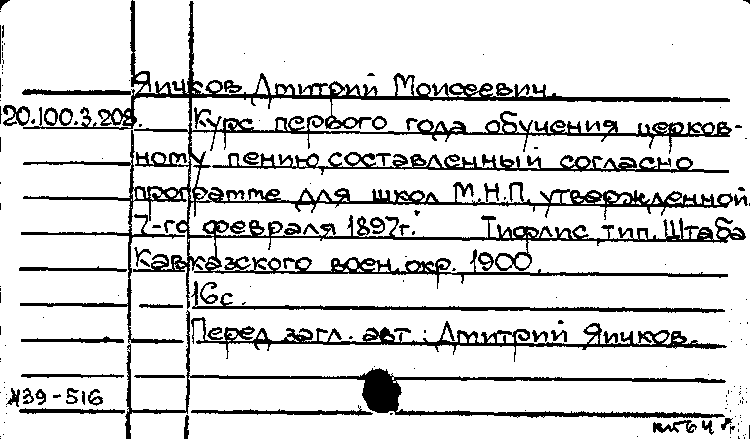 Япичков, Дмитрий Моисеевич.
20.100.3.208. Курс первого года обучения церков-
ному пению, составленный согласно
программе для школ М.Н.П. утвержденной
7-го февраля 1897г. Тифлис, тип. Штаба
Кавказского воен. окр., 1900.
16с.
Перед загл. авт.: Дмитрий Япичков.
И39-516